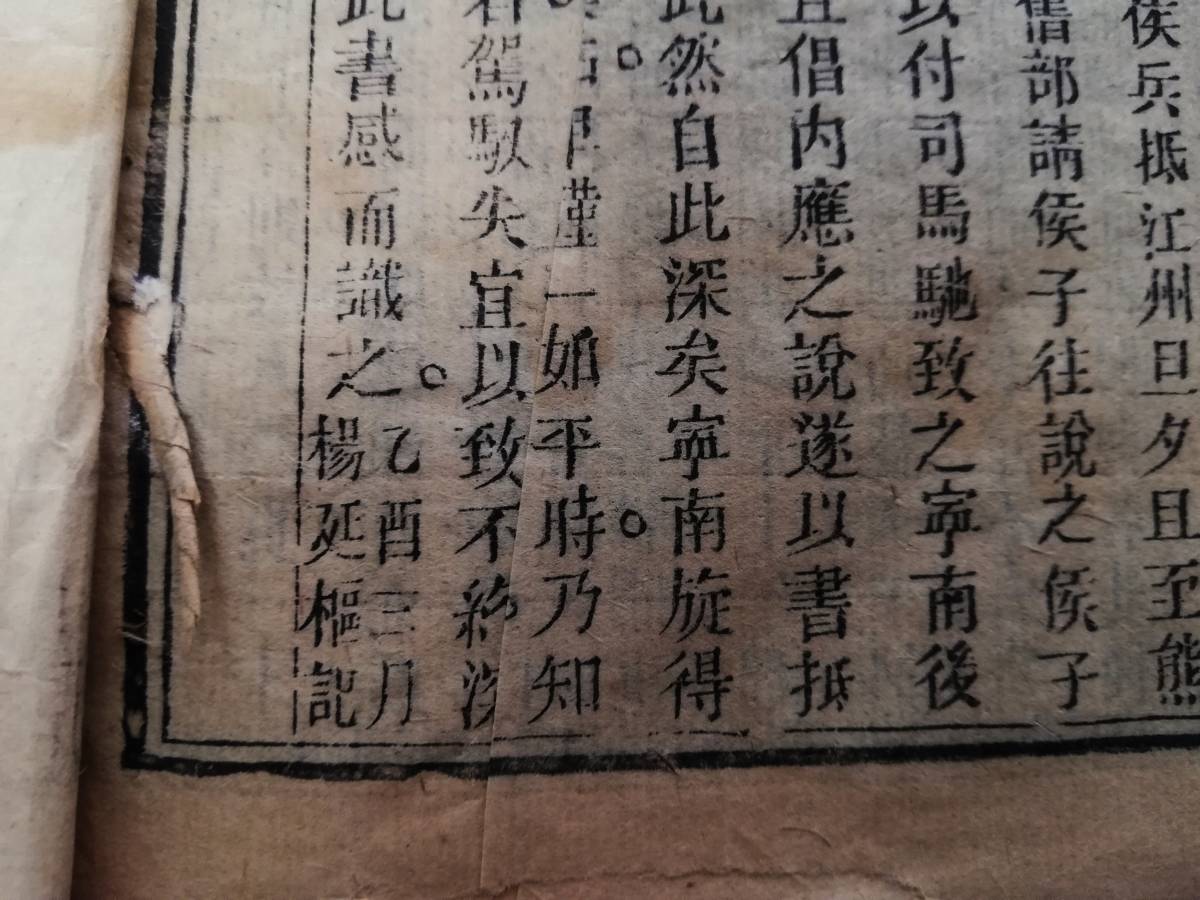 侯兵抵江州旦夕且至熊
舊部請侯子往說之侯子
以付司馬馳致之寧南後
且倡內應之說遂以書抵
此然自此深矣寧南旋得
謹一如平時乃知
駕馭失宜以致不終
此書感而識之。
乙酉三月
楊延樞記